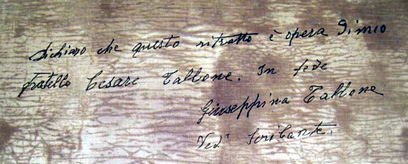 dichiaro che questo ritratto è opera di mio
fratello Cesare Tallone. In fede
Giuseppina Tallone
Ved. Scribante.